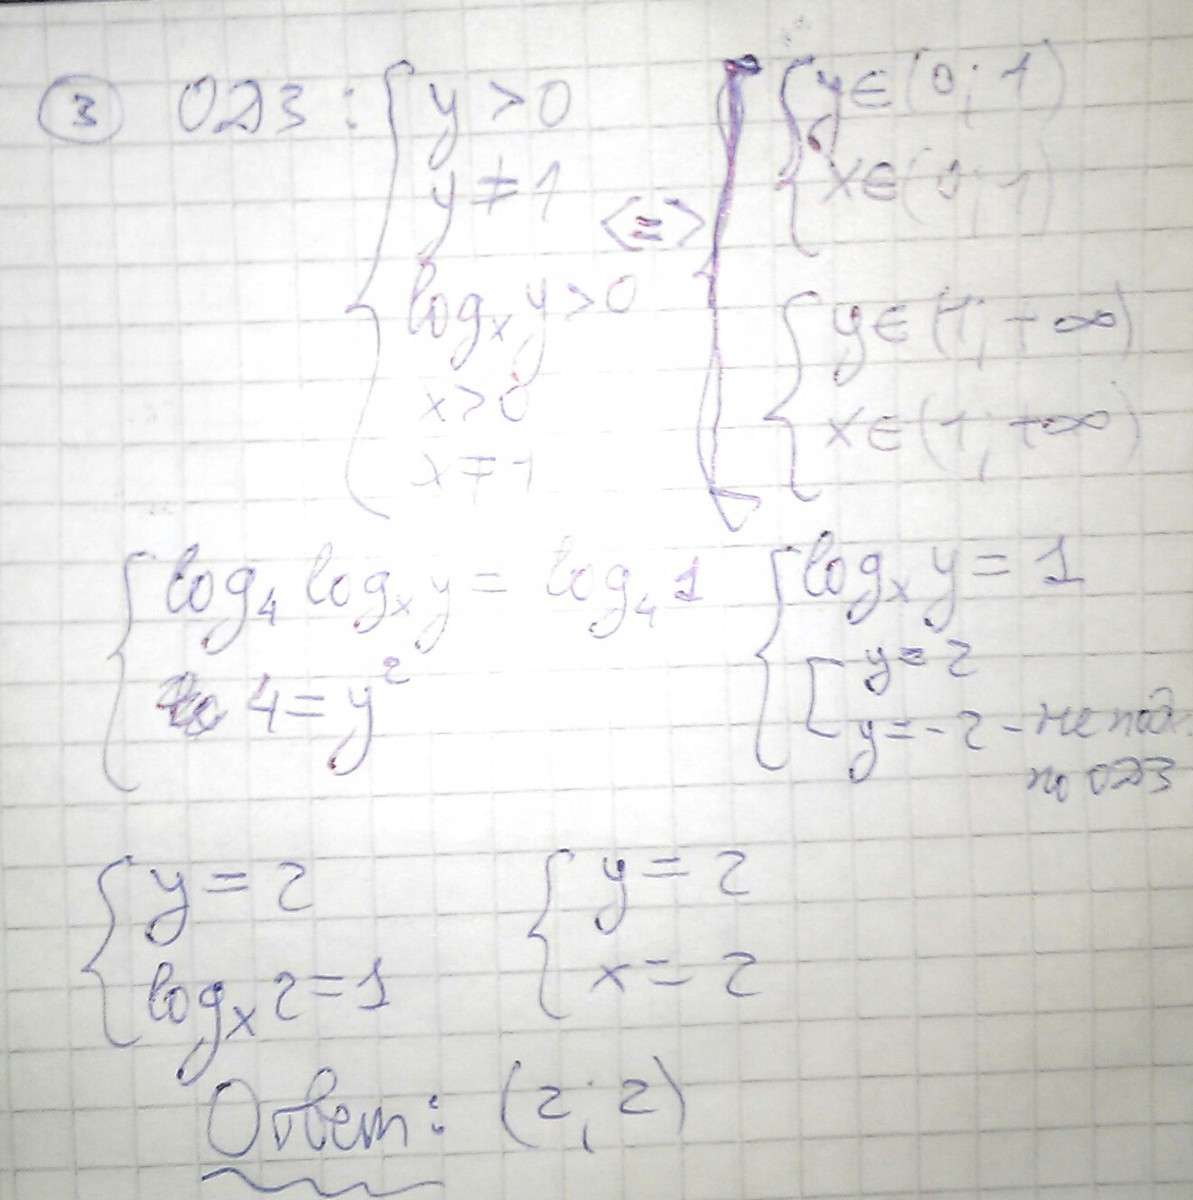 3 ОДЗ: { y > 0
y ≠ 1
log_x y > 0
x > 0
x ≠ 1
<=> [ { y ∈ (0; 1)
x ∈ (0; 1)
{ y ∈ (1; +∞)
x ∈ (1; +∞)
{ log₄ log_x y = log₄ 1
4 = y²
{ log_x y = 1
[ y = 2
y = -2 - не под.
по ОДЗ
{ y = 2
log_x 2 = 1
{ y = 2
x = 2
Ответ: (2; 2)